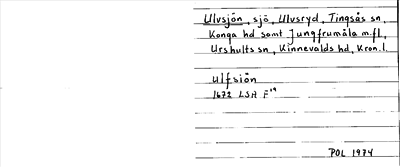 Ulvsjön, sjö, Ulvsryd, Tingsås sn,
Konga hd samt Jungfrumåla m.fl,
Urshults sn, Kinnevalds hd, Kron.l.
Ulfsiön
1672 LSA F
POL 1974